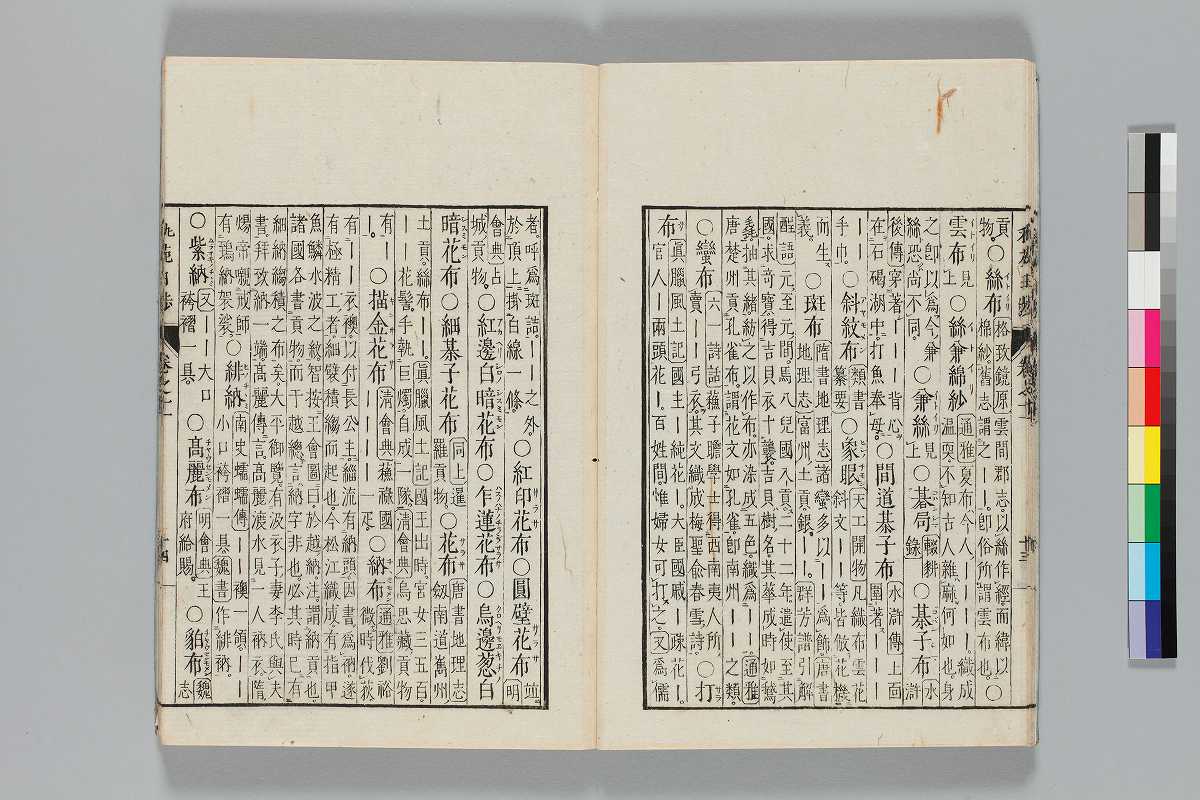 貢物。○絲布 格致鏡原雲間郡志。以絲作經。而緯以
棉紗。舊志謂之ーー。卽俗所謂雲布也。○
雲布 見上 ○絲兼綿紗 通雅夏布。今人ーー。織成
之。卽以爲今兼 溫耎不知古人雜蔴何如也。身
絲恐尚不同。 ○兼絲 見上 ○碁局 輟耕錄 ○碁子布 水滸
後傳穿著ーー背心。 ○間道碁子布 水滸傳上面
在石碣湖中。打魚奉母。 圍著ーーーー
手巾。 ○斜紋布 類書纂要 ○象眼 天工開物凡織布雲花
而生。 斜文ーー等皆倣花機
義。 ○斑布 隋書地理志諸蠻多以ーー爲飾。唐書
地理志富州土貢銀ーー。群芳譜引解
酲語元至元間。馬八兒國入貢。二十二年。遣使至其
國。求奇寶。得吉貝衣十襲。吉貝樹名。其華成時如鵞
毳。抽其緒紡之以作布。亦染成五色。織爲ーー。通雅
唐楚州貢孔雀布。謂花文如孔雀。卽南州ーー之類。
○蠻布 六一詩話蘓子瞻學士得西南夷人所
賣ーー弓衣。其文織成梅聖兪春雪詩。 ○打
布 眞臘風土記國主ー純花ー。大臣國戚ー疎花ー。
官人ー兩頭花ー。百姓間。惟婦女可打之。又爲儒
者。呼爲斑詰。ーー之外。 ○紅印花布 ○圓壁花布 竝明
於頂上掛白線一條。
會典占
城貢物。 ○紅邊白暗花布 ○乍蓮花布 ○烏邊葱白
暗花布 ○細碁子花布 同上暹羅貢物。 ○花布 唐書地理志
劔南道嶲州。
土貢絲布ーー。眞臘風土記國王出時宮女三五百。
ーー花髻。手執巨燭。自成一隊。淸會典烏思藏貢物
有ーー。 ○描金花布 淸會典蘓祿國ーーーー一疋。 ○納布 通雅劉裕
微時伐荻
有ーー衣襖。以付長公主。緇流有納頭。因書爲衲。遂
有極精工者。細襞積縐而起也。今松江織成有指甲
魚鱗水波之紋。智按王會圖曰。於越納。注謂納貢也。
諸國各書貢物。而于越總言納字非也。必其時已有
細納縐積之布矣。太平御覽。有波衣子妻李氏與夫
書。拜致納一端。高麗傳言。高麗渡水見一人衲衣。隋
煬帝嚫戒師 ○緋納 南史蠕蠕傳ーー襖一領ーー
有鵶納袈裟。 小口袴褶一具。魏書作緋衲。
○紫納 又ーー大口
袴褶一具。 ○高麗布 明會典王府給賜。 ○貊布 魏志
卷之十一
十三
十四